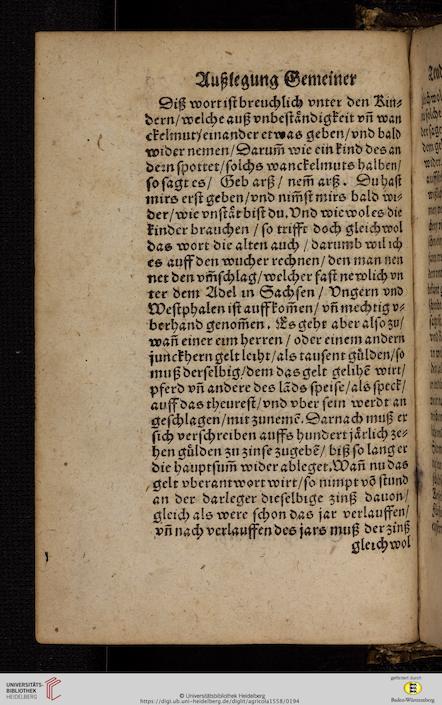 Außlegung Gemeiner
Diß wort ist breuchlich vnter den Kin⸗
dern/welche auß vnbeståndigkeit vñ wan
ckelmut/einander etwas geben/vnd bald
wider nemen/Darum̃ wie ein kind des an
dern spottet/solchs wanckelmuts halben/
so sagt es/ Geb arß/ nem̃ arß. Du hast
mirs erst geben/vnd nim̃st mirs bald wi⸗
der/wie vnståt bist du. Vnd wiewol es die
kinder brauchen/so trifft doch gleichwol
das wort die alten auch/darumb wil ich
es auff den wucher rechnen/den man nen
net den vm̃schlag/welcher fast newlich vn
ter dem Adel in Sachsen/Vngern vnd
Westphalen ist auffkom̃en/vñ mechtig v⸗
berhand genom̃en. Es geht aber also zu/
wañ einer eim herren/oder einem andern
junckhern gelt leiht/als tausent gůlden/so
muß derselbig/dem das gelt gelihẽ wirt/
pferd vñ andere des lãds speise/als speck/
auff das theurest/vnd vber sein werdt an
geschlagen/mit zunemẽ. Darnach muß er
sich verschreiben auffs hundert jårlich ze⸗
hen gůlden zu zinse zugebẽ/biß so lang er
die hauptsum̃ wider ableget. Wañ nu das
gelt vberantwort wirt/so nimpt võ stund
an der darleger dieselbige zinß dauon/
gleich als were schon das jar verlauffen/
vñ nach verlauffen des jars muß der zinß
gleichwol
UNIVERSITÄTS-
BIBLIOTHEK
HEIDELBERG
© Universitätsbibliothek Heidelberg
https://digi.ub.uni-heidelberg.de/diglit/agricola1558/0194
gefördert durch
Baden-Württemberg